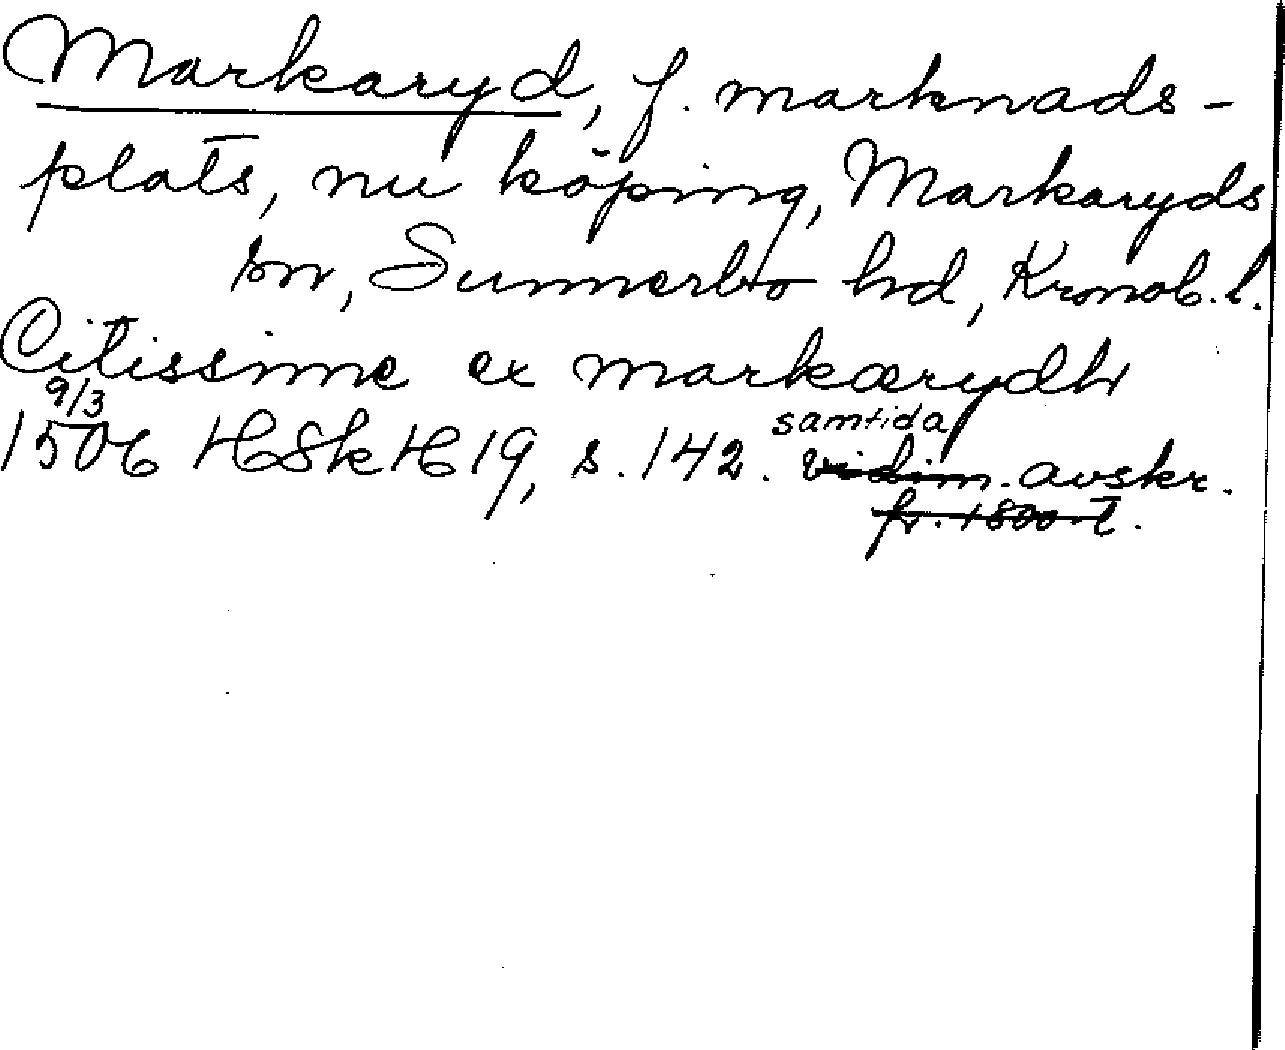 Markaryd, f. marknads-
plats, nu köping, Markaryds
sn, Sunnerbo hd, Kronob. l.
Citissime ex markærydh
9/3
1506 HSkH 19, s. 142. vidim. avskr.
samtida
fr. 1800-t.